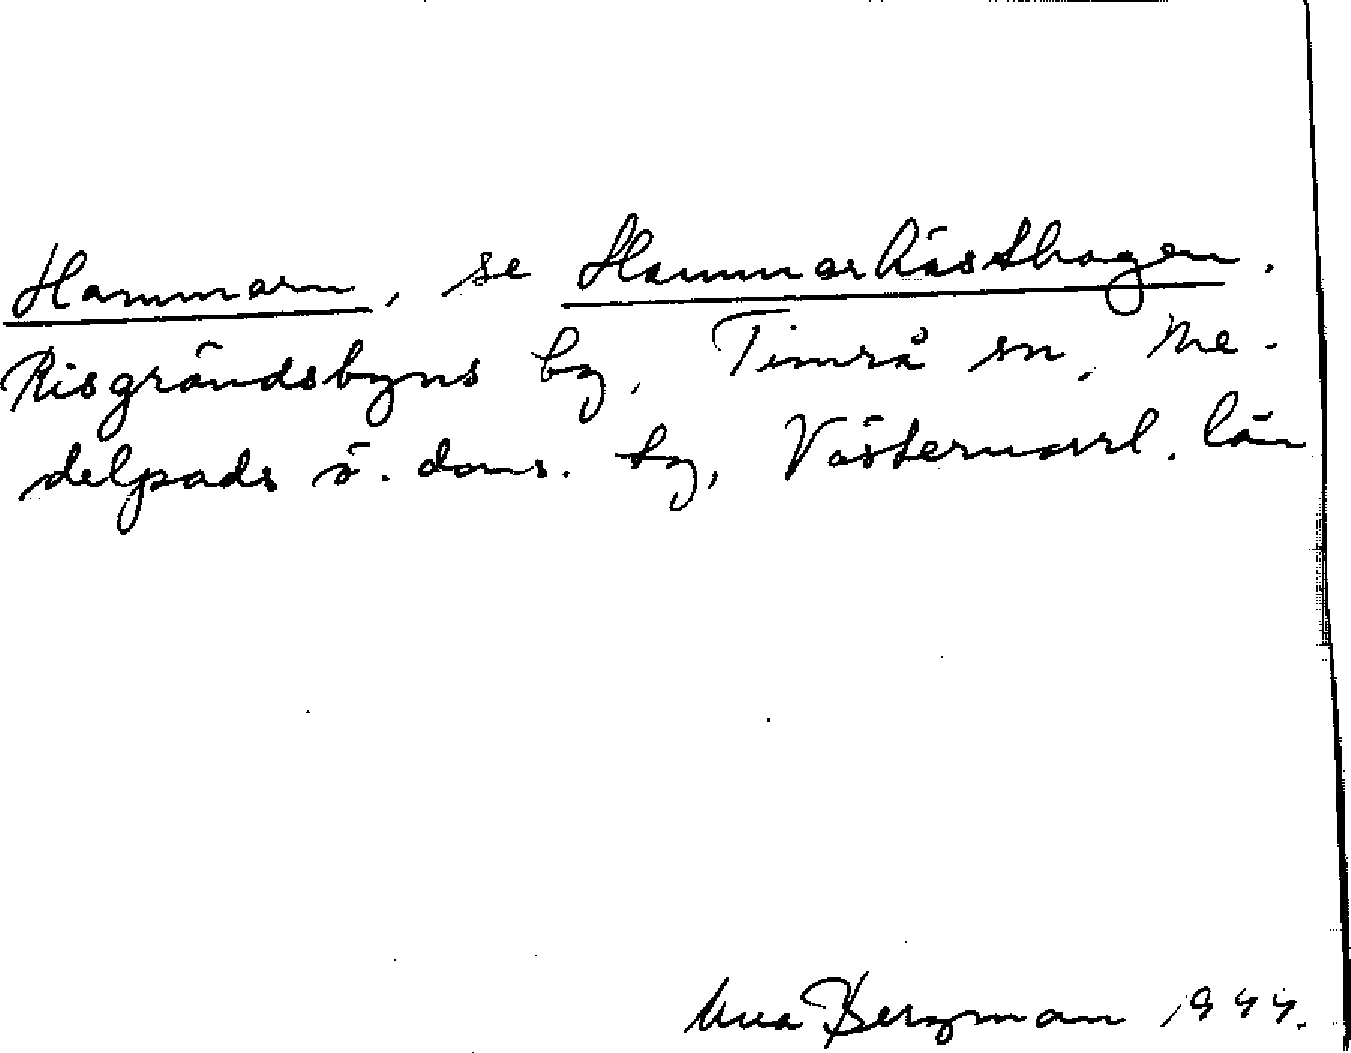 Hammarn, se Hammarhästhagen.
Risgrändsbyns by, Timrå sn, Me-
delpads ö. doms. by, Västernorrl. län
Bergman 1944.